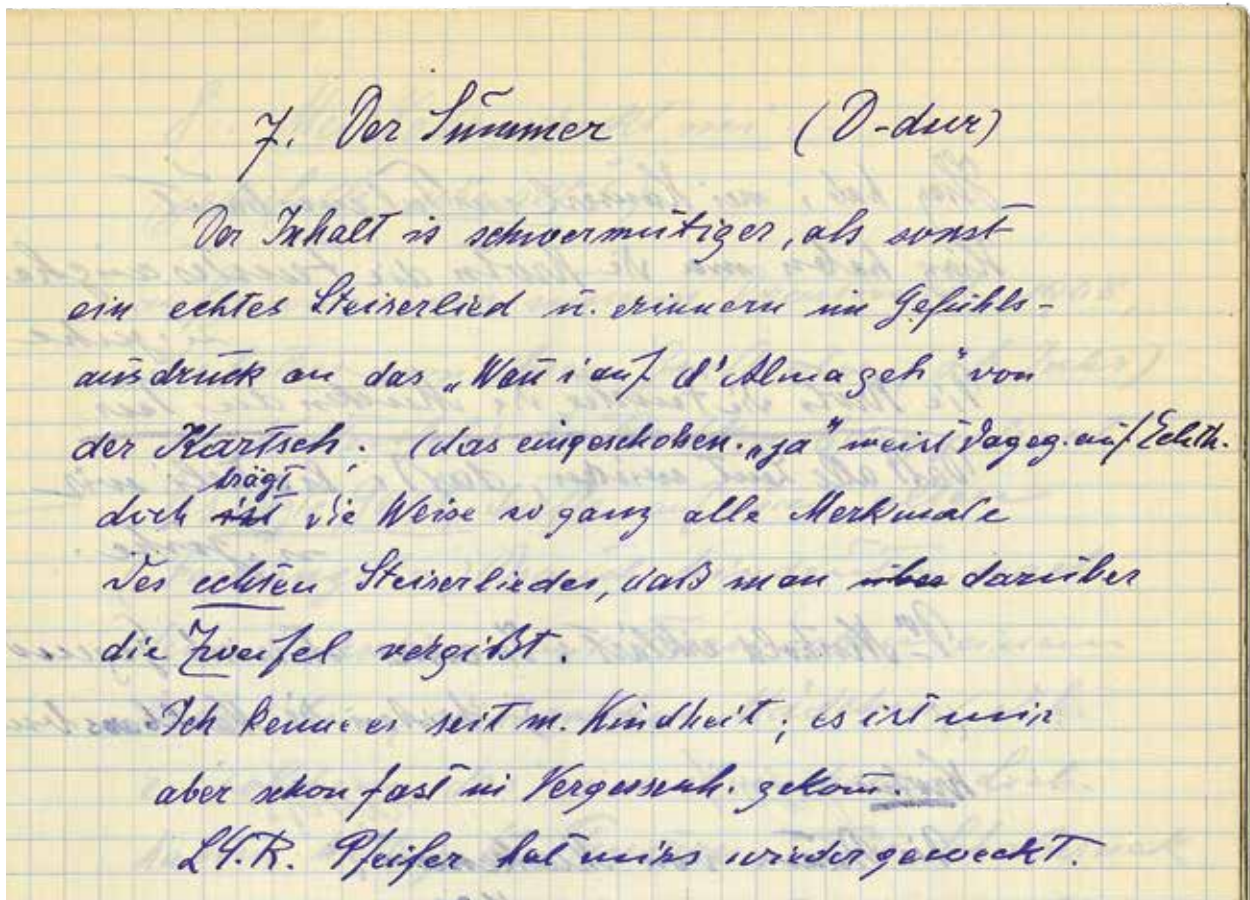 7. Der Summer (D-dur)
Der Inhalt is schwermütiger, als sonst
ein echtes Steirerlied u. erinnern im Gefühls-
ausdruck an das „Wann i auf d' Alma geh" von
der Kartsch; (das eingeschoben. „ja" weist dageg. auf Echth.
trägt
doch ist die Weise so ganz alle Merkmale
des echten Steirerliedes, daß man über darüber
die Zweifel vergißt.
Ich kenne es seit m. Kindheit; es ist mir
aber schon fast in Vergessenh. gekom̄.
Pfeifer hat mirs wieder geweckt.